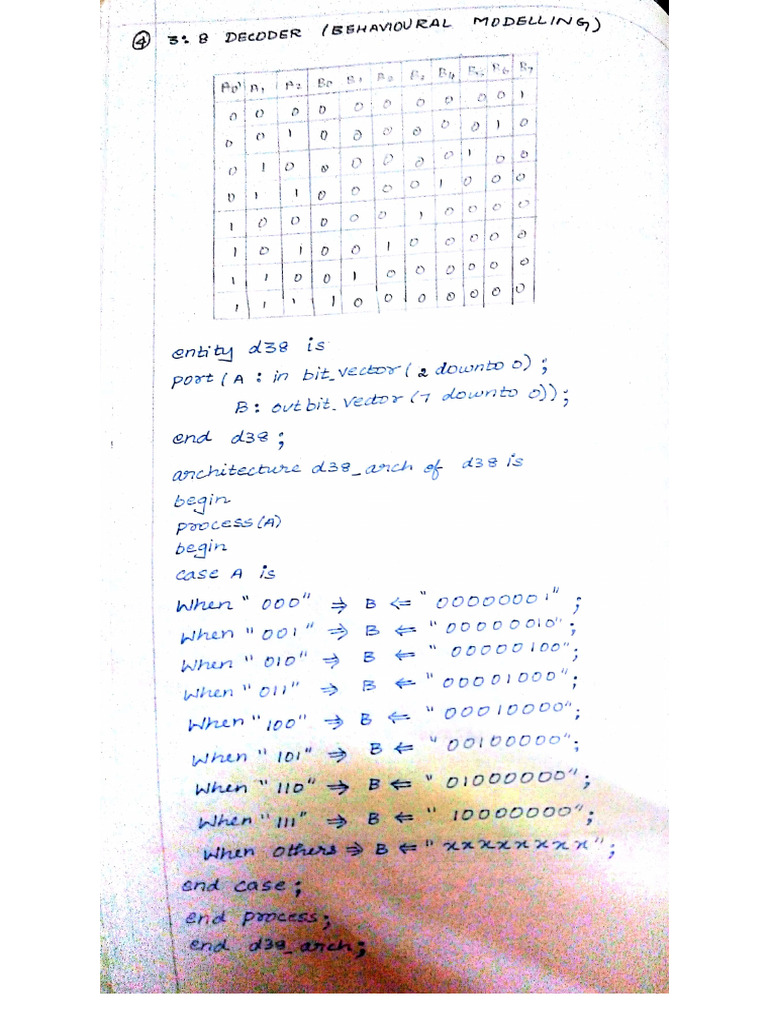 ④ 3:8 DECODER (BEHAVIOURAL MODELLING)
A0 A1 A2 B0 B1 B2 B3 B4 B5 B6 B7
0 0 0 0 0 0 0 0 0 0 1
0 0 1 0 0 0 0 0 0 1 0
0 1 0 0 0 0 0 0 1 0 0
0 1 1 0 0 0 0 1 0 0 0
1 0 0 0 0 0 1 0 0 0 0
1 0 1 0 0 1 0 0 0 0 0
1 1 0 0 1 0 0 0 0 0 0
1 1 1 1 0 0 0 0 0 0 0
entity d38 is
port (A : in bit_vector (2 downto 0);
B: out bit_vector (7 downto 0));
end d38;
architecture d38_arch of d38 is
begin
process (A)
begin
case A is
When "000" => B <= "00000001";
When "001" => B <= "00000010";
When "010" => B <= "00000100";
When "011" => B <= "00001000";
When "100" => B <= "00010000";
When "101" => B <= "00100000";
When "110" => B <= "01000000";
When "111" => B <= "10000000";
When others => B <= "xxxxxxxx";
end case;
end process;
end d38_arch;